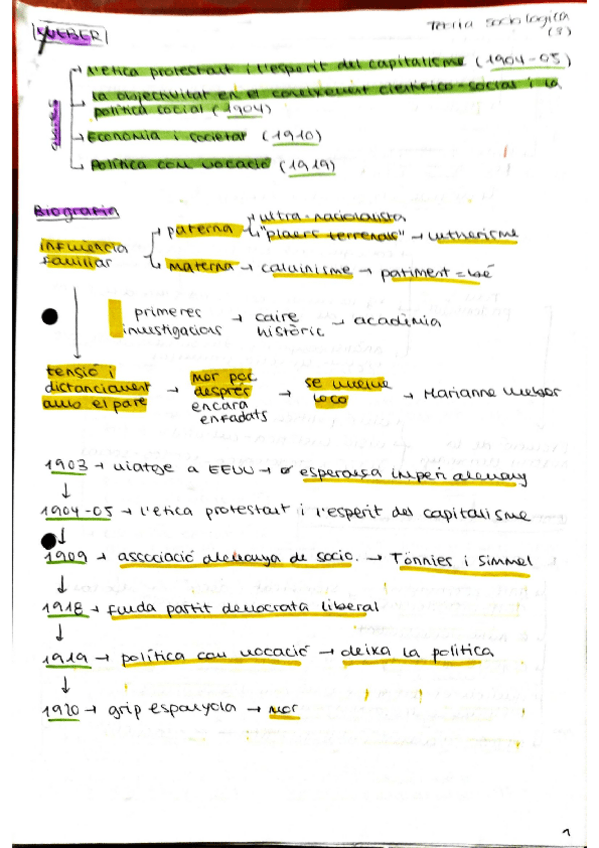 WEBER
Teoria sociològica
(3)
obres
L'ètica protestant i l'esperit del capitalisme (1904-05)
La objectivitat en el coneixement científico-social i la
política social (1904)
Economia i societat (1910)
Política com vocació (1919)
Biografia
influència
familiar
paterna
ultra-nacionalista
"plaers terrenals" → lutherisme
materna → calvinisme → patiment = bé
primeres
investigacions
→ caire
històric
→ acadèmia
tensió i
distanciament
amb el pare
→ mor poc
després
encara
enfadats
→ se vuelve
loco
→ Marianne Weber
1903 → viatge a EEUU → esperança imperi alemany
↓
1904-05 → l'ètica protestant i l'esperit del capitalisme
↓
1909 → associació alemanya de socio. → Tönnies i Simmel
↓
1918 → funda partit demòcrata liberal
↓
1919 → política com vocació → deixa la política
↓
1920 → grip espanyola → mor
1